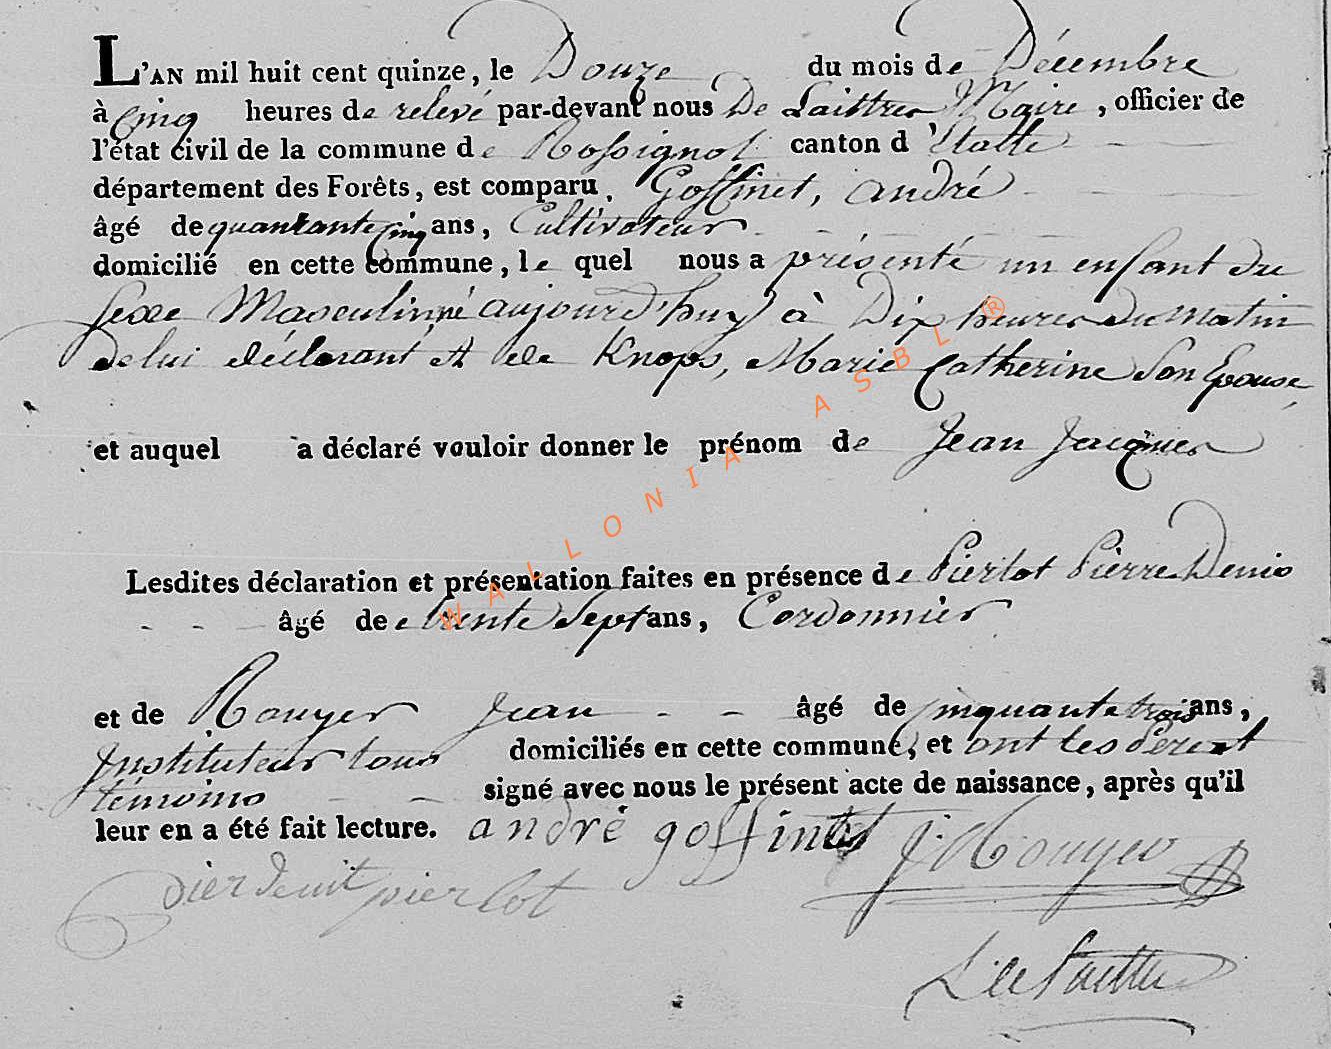 L'AN mil huit cent quinze, le Douze du mois de Décembre
à Cinq heures de relevé par-devant nous De Laittres Maire, officier de
l'état civil de la commune de Rossignol canton d'Etalle
département des Forêts, est comparu Goffinet, andré
âgé de quarante Cinq ans, Cultivateur
domicilié en cette commune, le quel nous a présenté un enfant du
sexe Masculin né aujourd'huy à Dix heures du matin
de lui déclarant et de Knops, Marie Catherine Son Epouse,
et auquel a déclaré vouloir donner le prénom de Jean Jacques
Lesdites déclaration et présentation faites en présence de Pierlot Pierre Denis
âgé de trente Sept ans, Cordonnier
et de Rouyer Jean âgé de cinquante trois ans,
Instituteur tous domiciliés en cette commune, et ont les
témoins signé avec nous le présent acte de naissance, après qu'il
leur en a été fait lecture. andré goffinet J: Rouyer
pierlot
WALLONIA ASBL ®